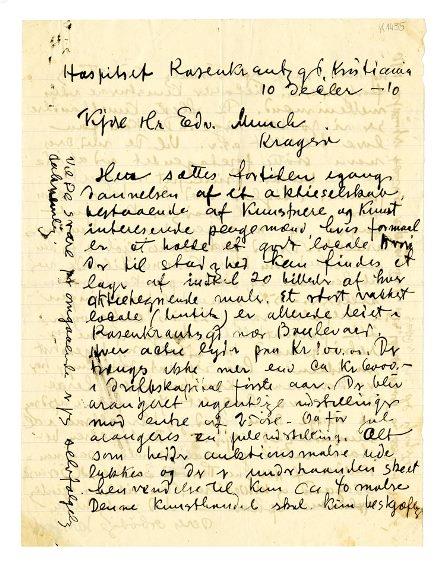 K 1435
Hospitset Rosenkrantzg 6, Kristiania
10 December –10
Kjære Hr Edv. Munch
Kragerø
Her sættes fortiden igang
dannelsen af et aktieselskab
bestaaende af Kunstnere og Kunst
interesserede pengemænd, hvis formaal
er at holde et godt locale hvor
der til stadighed kan findes et
lager af indtil 20 billeder af hver
aktietegnende maler. Et stort vakkert
locale (butik) er allerede leiet i
Rosenkrantzgt nær Boulevard.
Hver actie lyder paa Kr 100.00. Der
trængs ikke mer end Ca Kr 6000.-
i driftskapital første aar. Der blir
arangeret ugentlige udstillinger
mod entre af 25 øre. Og før jul
arangeres en juleudstilling. Alt
som heder auktionsmalere ude
lykkes og der er underhaanden skeet
henvendelse til kun Ca 40 malere
Denne Kunsthandel skal kun beskjæftige
Vil De svare pr omgaaende er De selvfølgelig